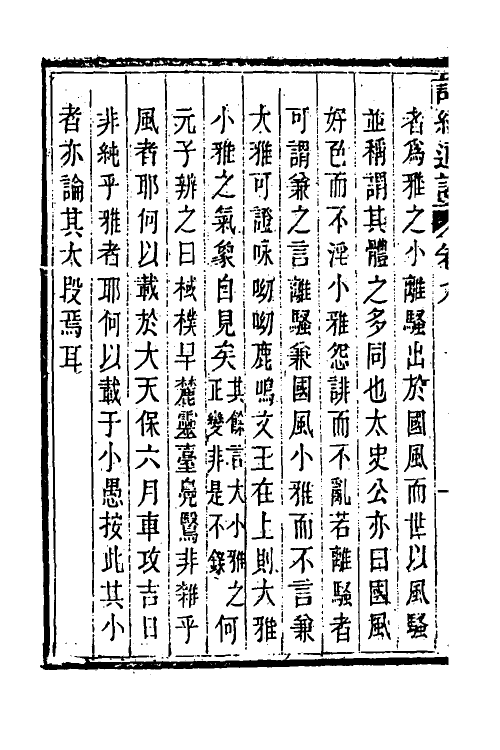 詩經通義 卷九
者爲雅之小離騷出於國風而世以風騷
並稱謂其體之多同也太史公亦曰國風
好色而不淫小雅怨誹而不亂若離騷者
可謂兼之言離騷兼國風小雅而不言兼
大雅可證咏呦呦鹿鳴文王在上則大雅
小雅之氣象自見矣其餘言大小雅之何正變非是不錄
元子辨之曰棫樸旱麓靈臺鳧鷖非雜乎
風者耶何以載於大天保六月車攻吉日
非純乎雅者耶何以載于小愚按此其小
者亦論其大段焉耳